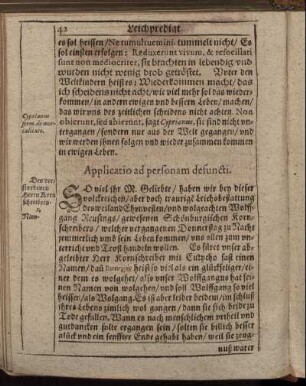 42 Leichpredigt
es sol heissen / Ne tumultuemini, tummelt nicht / Es
sol einsten erfolgen: Reduxerunt vivum, & refocillati
sunt non mediocriter, sie brachten in lebendig / und
wurden nicht wenig drob getröstet. Unter den
Weltkindern heists; Wiederkommen macht / das
ich scheidens nicht acht / wie viel mehr sol das wieder-
kommen / in andern ewigen und bessern Leben / machen /
das wir uns des zeitlichen scheidens nicht achten. Non
obierunt, sed abierunt, sagt Cyprianus, sie sind nicht un-
tergangen / sondern nur aus der Welt gegangen / und
wir werden ihnen folgen und wieder zusammen kommen
im ewigen Leben.
Cyprianus
serm. de mor-
talitate.
Applicatio ad personam defuncti.
Den ver-
storbenen
Herrn Korn
schreibern
So viel ihr M. Geliebte / haben wir bey dieser
volckreichen / aber doch traurigen Leichbestattung
des weiland Ehrnvesten / und wolgeachten Wolff-
gang Reusings / gewesenen Schönburgischen Korn-
schreibers / welcher vergangenen Donnerstag zu Nacht
jemmerlich umb sein Leben kommen / uns allen zum un-
terricht und Trost handeln wollen. Es führet unser ab-
geleibter Herr Kornschreiber mit Eutycho fast einen
Namen / das
heist so viel als ein glückseliger / ei-
ner dem es wolgehet / also unser Wolffgang hat sei-
nen Namen von wolgehen / und sol Wolffgang so viel
heissen / als Wolgang. Es ist aber leider beiden / im schluß
ihres Lebens zimlich wol gangen / dann sie sich beide zu
Tode gefallen. Wann es nach menschlichem urtheil und
gutdüncken solte ergangen sein / solten sie billich besser
glück und ein senffter Ende gehabt haben / weil sie